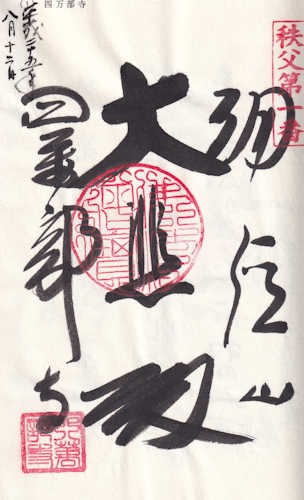 秩父第一番
誦经山
大悲殿
四萬部寺
平成二十五年
八月十二日
四万部寺